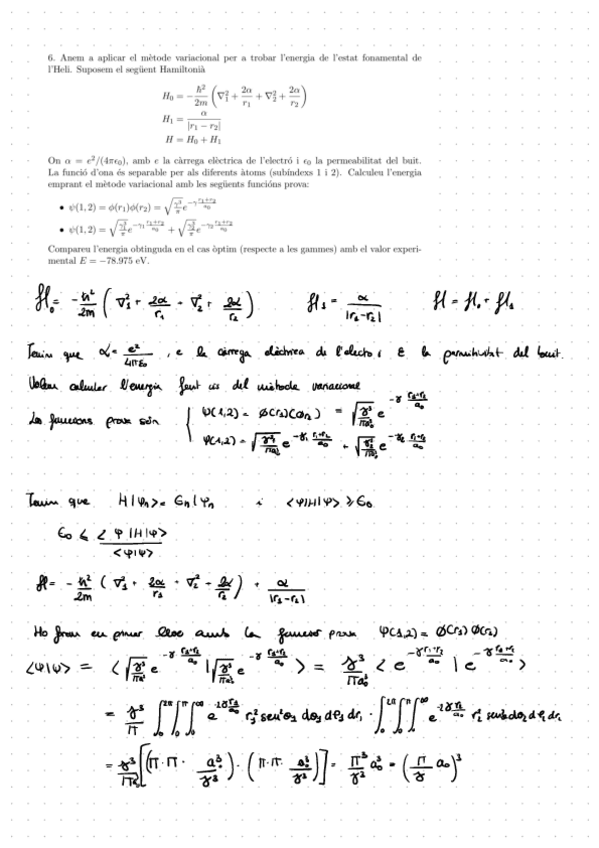 6. Anem a aplicar el mètode variacional per a trobar l'energia de l'estat fonamental de
l'Heli. Suposem el següent Hamiltonià
H₀ = −ℏ²/2m (∇₁² + 2α/r₁ + ∇₂² + 2α/r₂)
H₁ = α/|r₁ − r₂|
H = H₀ + H₁
On α = e²/(4πϵ₀), amb e la càrrega elèctrica de l'electró i ϵ₀ la permeabilitat del buit.
La funció d'ona és separable per als diferents àtoms (subíndexs 1 i 2). Calculeu l'energia
emprant el mètode variacional amb les següents funcións prova:
• ψ(1, 2) = ϕ(r₁)ϕ(r₂) = √(γ³/π) e^(−γ (r₁+r₂)/a₀)
• ψ(1, 2) = √(γ₁³/π) e^(−γ₁ (r₁+r₂)/a₀) + √(γ₂³/π) e^(−γ₂ (r₁+r₂)/a₀)
Compareu l'energia obtinguda en el cas òptim (respecte a les gammes) amb el valor experi-
mental E = −78.975 eV.
H₀ = −ℏ²/2m (∇₁² + 2α/r₁ + ∇₂² + 2α/r₂) H₁ = α/|r₁−r₂| H = H₀ + H₁
Tenim que α = e²/4πε₀, e la càrrega elèctrica de l'electró i ε la permitivitat del buit.
Volem calcular l'energia fent ús del mètode variacional
Les funcions prova són ψ(1,2) = ϕ(r₁)ϕ(r₂) = √(γ³/πa₀³) e^(−γ (r₁+r₂)/a₀)
ψ(1,2) = √(γ₁³/πa₀³) e^(−γ₁ (r₁+r₂)/a₀) + √(γ₂³/πa₀³) e^(−γ₂ (r₁+r₂)/a₀)
Tenim que H|φₙ> = Eₙ|φₙ i <ψ|H|ψ> ≥ E₀
E₀ ≤ <φ|H|φ>/<φ|φ>
H = −ℏ²/2m (∇₁² + 2α/r₁ + ∇₂² + 2α/r₂) + α/|r₁−r₂|
Ho fem en primer lloc amb la funció prova φ(1,2) = ϕ(r₁)ϕ(r₂)
<ψ|ψ> = <√(γ³/πa₀³) e^(−γ (r₁+r₂)/a₀) | √(γ³/πa₀³) e^(−γ (r₁+r₂)/a₀)> = γ³/πa₀³ <e^(−γ (r₁+r₂)/a₀) | e^(−γ (r₁+r₂)/a₀)>